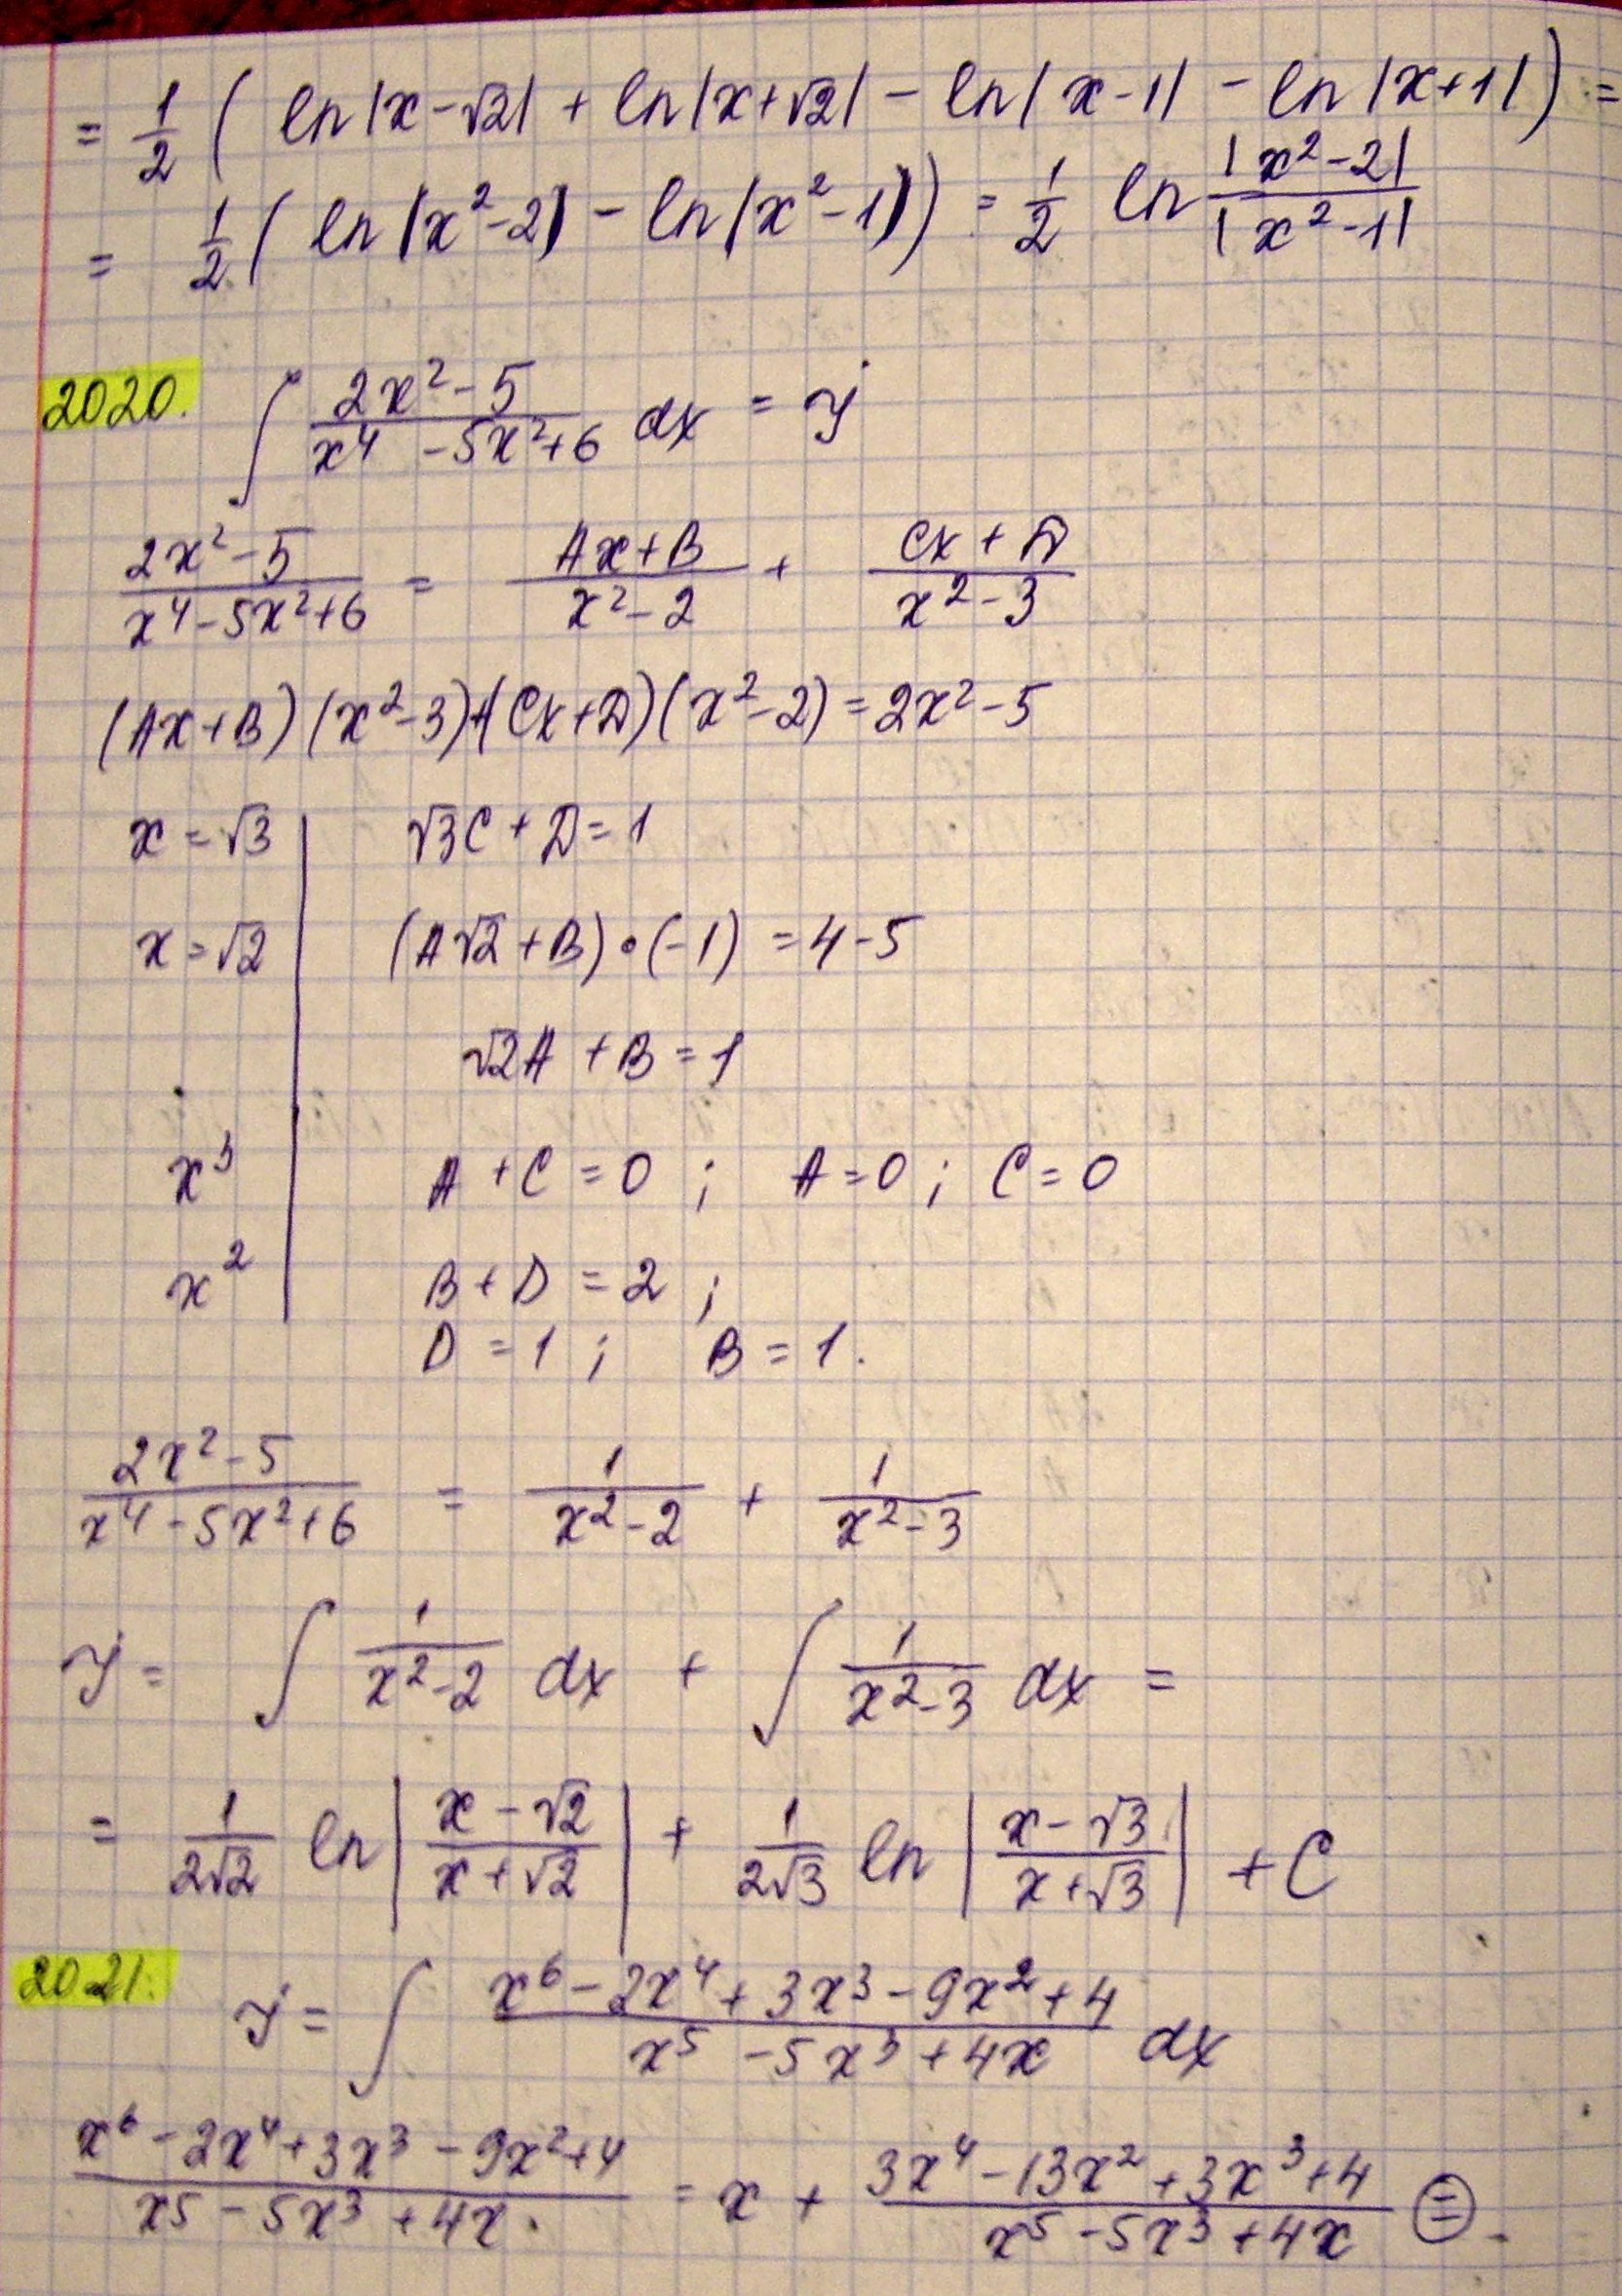 = 1/2 ( ln|x-√2| + ln|x+√2| - ln|x-1| - ln|x+1| ) =
= 1/2 ( ln|x²-2| - ln|x²-1| ) = 1/2 ln |x²-2|/|x²-1|
2020. ∫ (2x²-5)/(x⁴ -5x²+6) dx = J
(2x²-5)/(x⁴-5x²+6) = (Ax+B)/(x²-2) + (Cx+D)/(x²-3)
(Ax+B)(x²-3)+(Cx+D)(x²-2)=2x²-5
x=√3 | √3C+D=1
x=√2 | (A√2+B)•(-1) =4-5
√2A +B=1
x³ | A+C=0 ; A=0 ; C=0
x² | B+D=2 ;
D=1 ; B=1.
(2x²-5)/(x⁴-5x²+6) = 1/(x²-2) + 1/(x²-3)
J= ∫ 1/(x²-2) dx + ∫ 1/(x²-3) dx =
= 1/(2√2) ln|(x-√2)/(x+√2)| + 1/(2√3) ln|(x-√3)/(x+√3)| +C
2021. J= ∫ (x⁶-2x⁴+3x³-9x²+4)/(x⁵ -5x³+4x) dx
(x⁶-2x⁴+3x³-9x²+4)/(x⁵-5x³+4x) = x + (3x⁴-13x²+3x³+4)/(x⁵-5x³+4x) ⊜